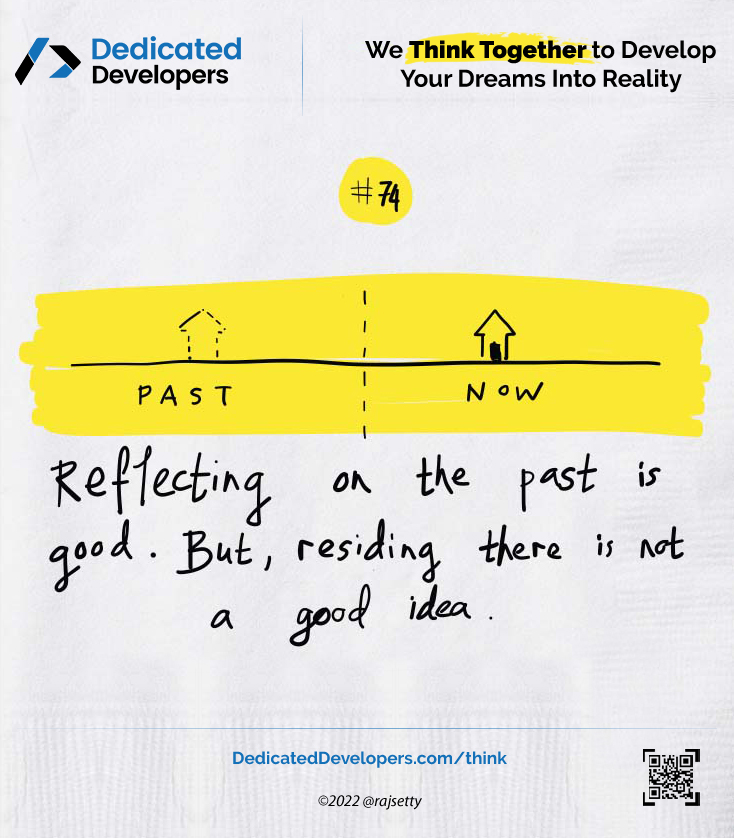 Dedicated
Developers
We Think Together to Develop
Your Dreams Into Reality
#74
PAST
NOW
Reflecting on the past is
good. But, residing there is not
a good idea.
DedicatedDevelopers.com/think
©2022 @rajsetty